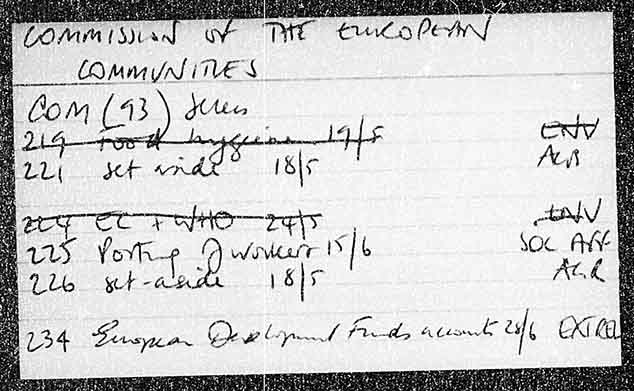 COMMISSION OF THE EUROPEAN
COMMUNITIES
COM (93) series
219 Food hygiene 19/5 ENV
221 set aside 18/5 AGR
224 EC + WHO 24/5 ENV
225 Posting of workers 15/6 SOC AFF
226 set-aside 18/5 AGR
234 European Development Funds accounts 28/6 EXTREL